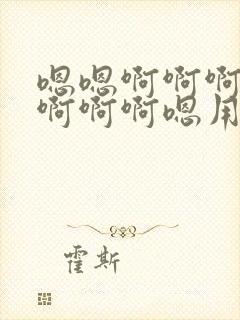 嗯嗯啊啊啊
啊啊啊嗯用
霍斯